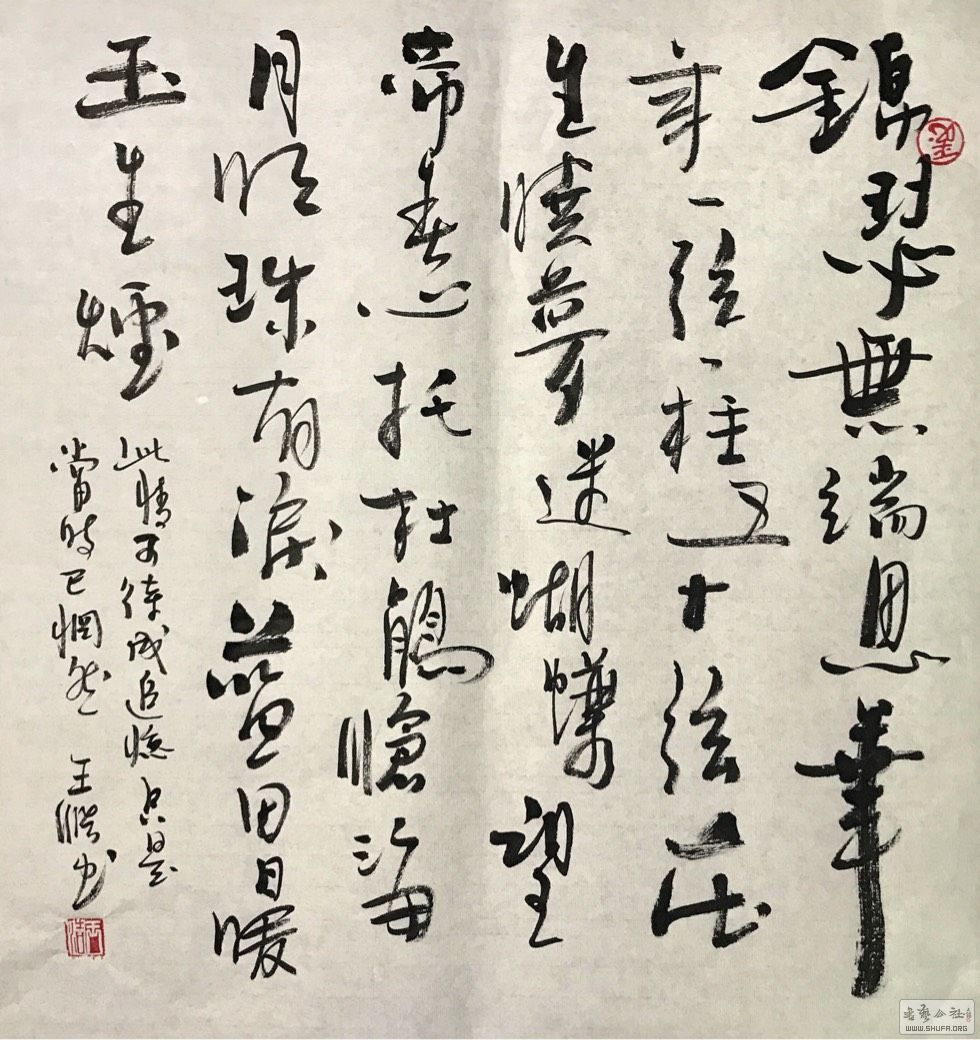 錦瑟無端思華
年一弦一柱五十弦莊
生曉夢迷蝴蝶望
帝春心托杜鵑滄海
月明珠有淚藍田日暖
玉生煙
此情可待成追憶只是
當時已惘然 王书
書藝公社
WWW.SHUFA.ORG